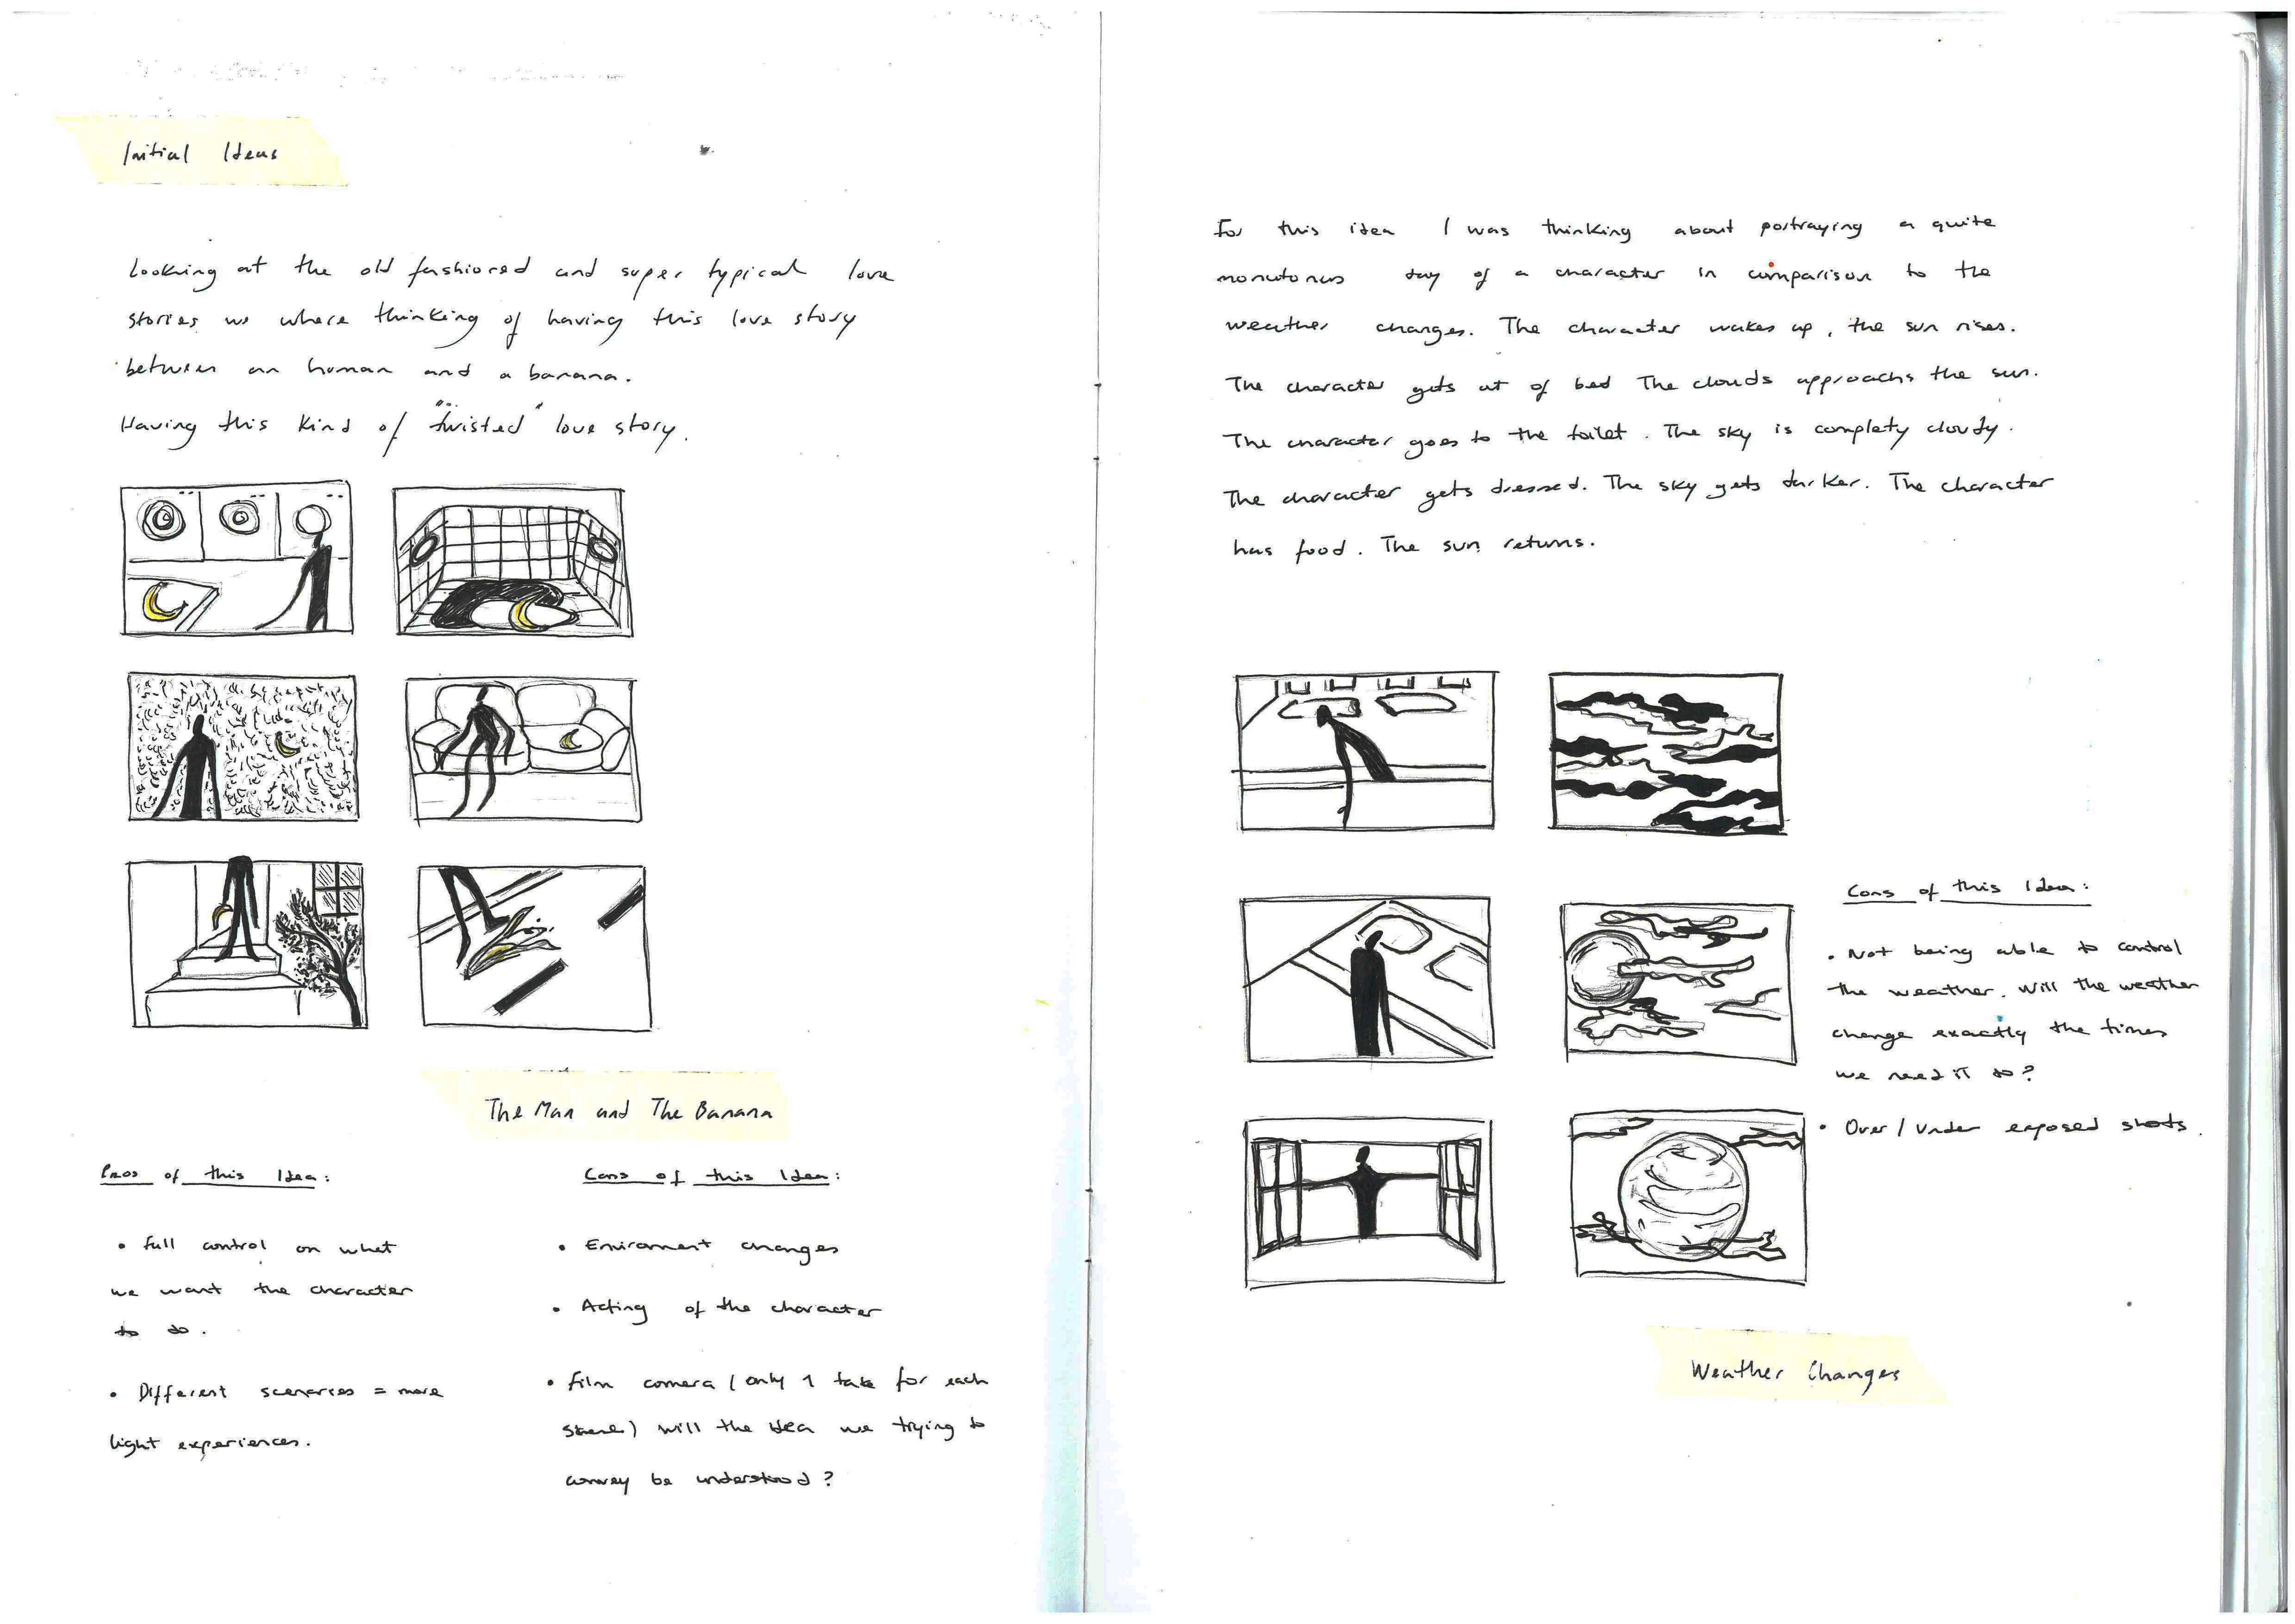 Initial Ideas
Looking at the old fashioned and super typical love
stories we where thinking of having this love story
between an human and a banana.
Having this kind of "twisted" love story.
The Man and The Banana
Pros of this Idea:
• Full control on what
we want the character
to do.
• Different scenarios = more
light experiences.
Cons of this Idea:
• Enviroment changes
• Acting of the character
• Film camera (only 1 take for each
scene) will the idea we trying to
convey be understood?
For this idea I was thinking about portraying a quite
monotonus day of a character in comparison to the
weather changes. The character wakes up, the sun rises.
The character gets ut of bed The clouds approachs the sun.
The character goes to the toilet. The sky is complety cloudy.
The character gets dressed. The sky gets darker. The character
has food. The sun returns.
Cons of this Idea:
• Not being able to control
the weather. Will the weather
change exactly the times
we need it to?
• Over / Under exposed shots.
Weather Changes